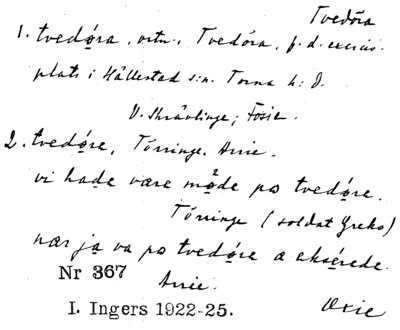 Tvedöra
1. tvedøra, ortn., Tvedöra, f. d. excercis-
plats i Hällestad s:n. Torna h: d.
V. Skrävlinge; Fosie.
2. tvedøre, Törringe. Arrie.
vi hade vare møde po tvedøre.
Törringe (soldat Greko)
nær ja va po tvedøre a eksérede.
Arrie.
Nr 367
I. Ingers 1922-25.
Oxie